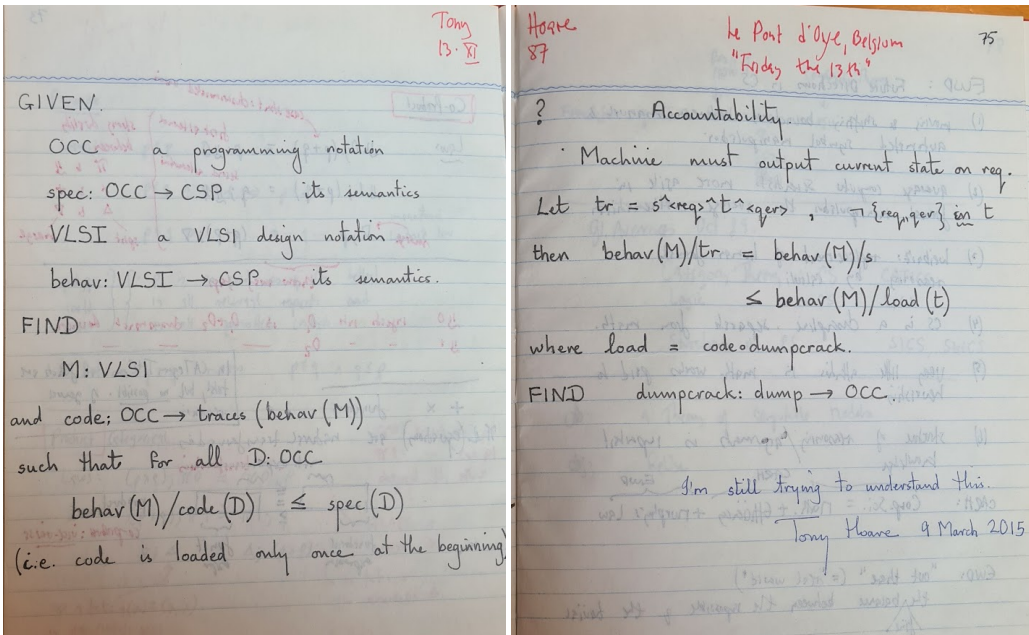 Tony
13·XI
GIVEN.
OCC a programming notation
spec: OCC → CSP its semantics
VLSI a VLSI design notation
behav: VLSI → CSP its semantics.
FIND
M: VLSI
and code: OCC → traces (behav(M))
such that for all D: OCC
behav(M)/code(D) ≤ spec(D)
(i.e. code is loaded only once at the beginning)
Hoare
87
Le Pont d'Oye, Belgium
"Friday the 13th"
75
? Accountability
· Machine must output current state on req.
Let tr = s^<req>^t^<qer>, ¬{req,qer} in t
then behav(M)/tr = behav(M)/s
≤ behav(M)/load(t)
where load = code∘dumpcrack.
FIND dumpcrack: dump → OCC.
I'm still trying to understand this.
Tony Hoare 9 March 2015